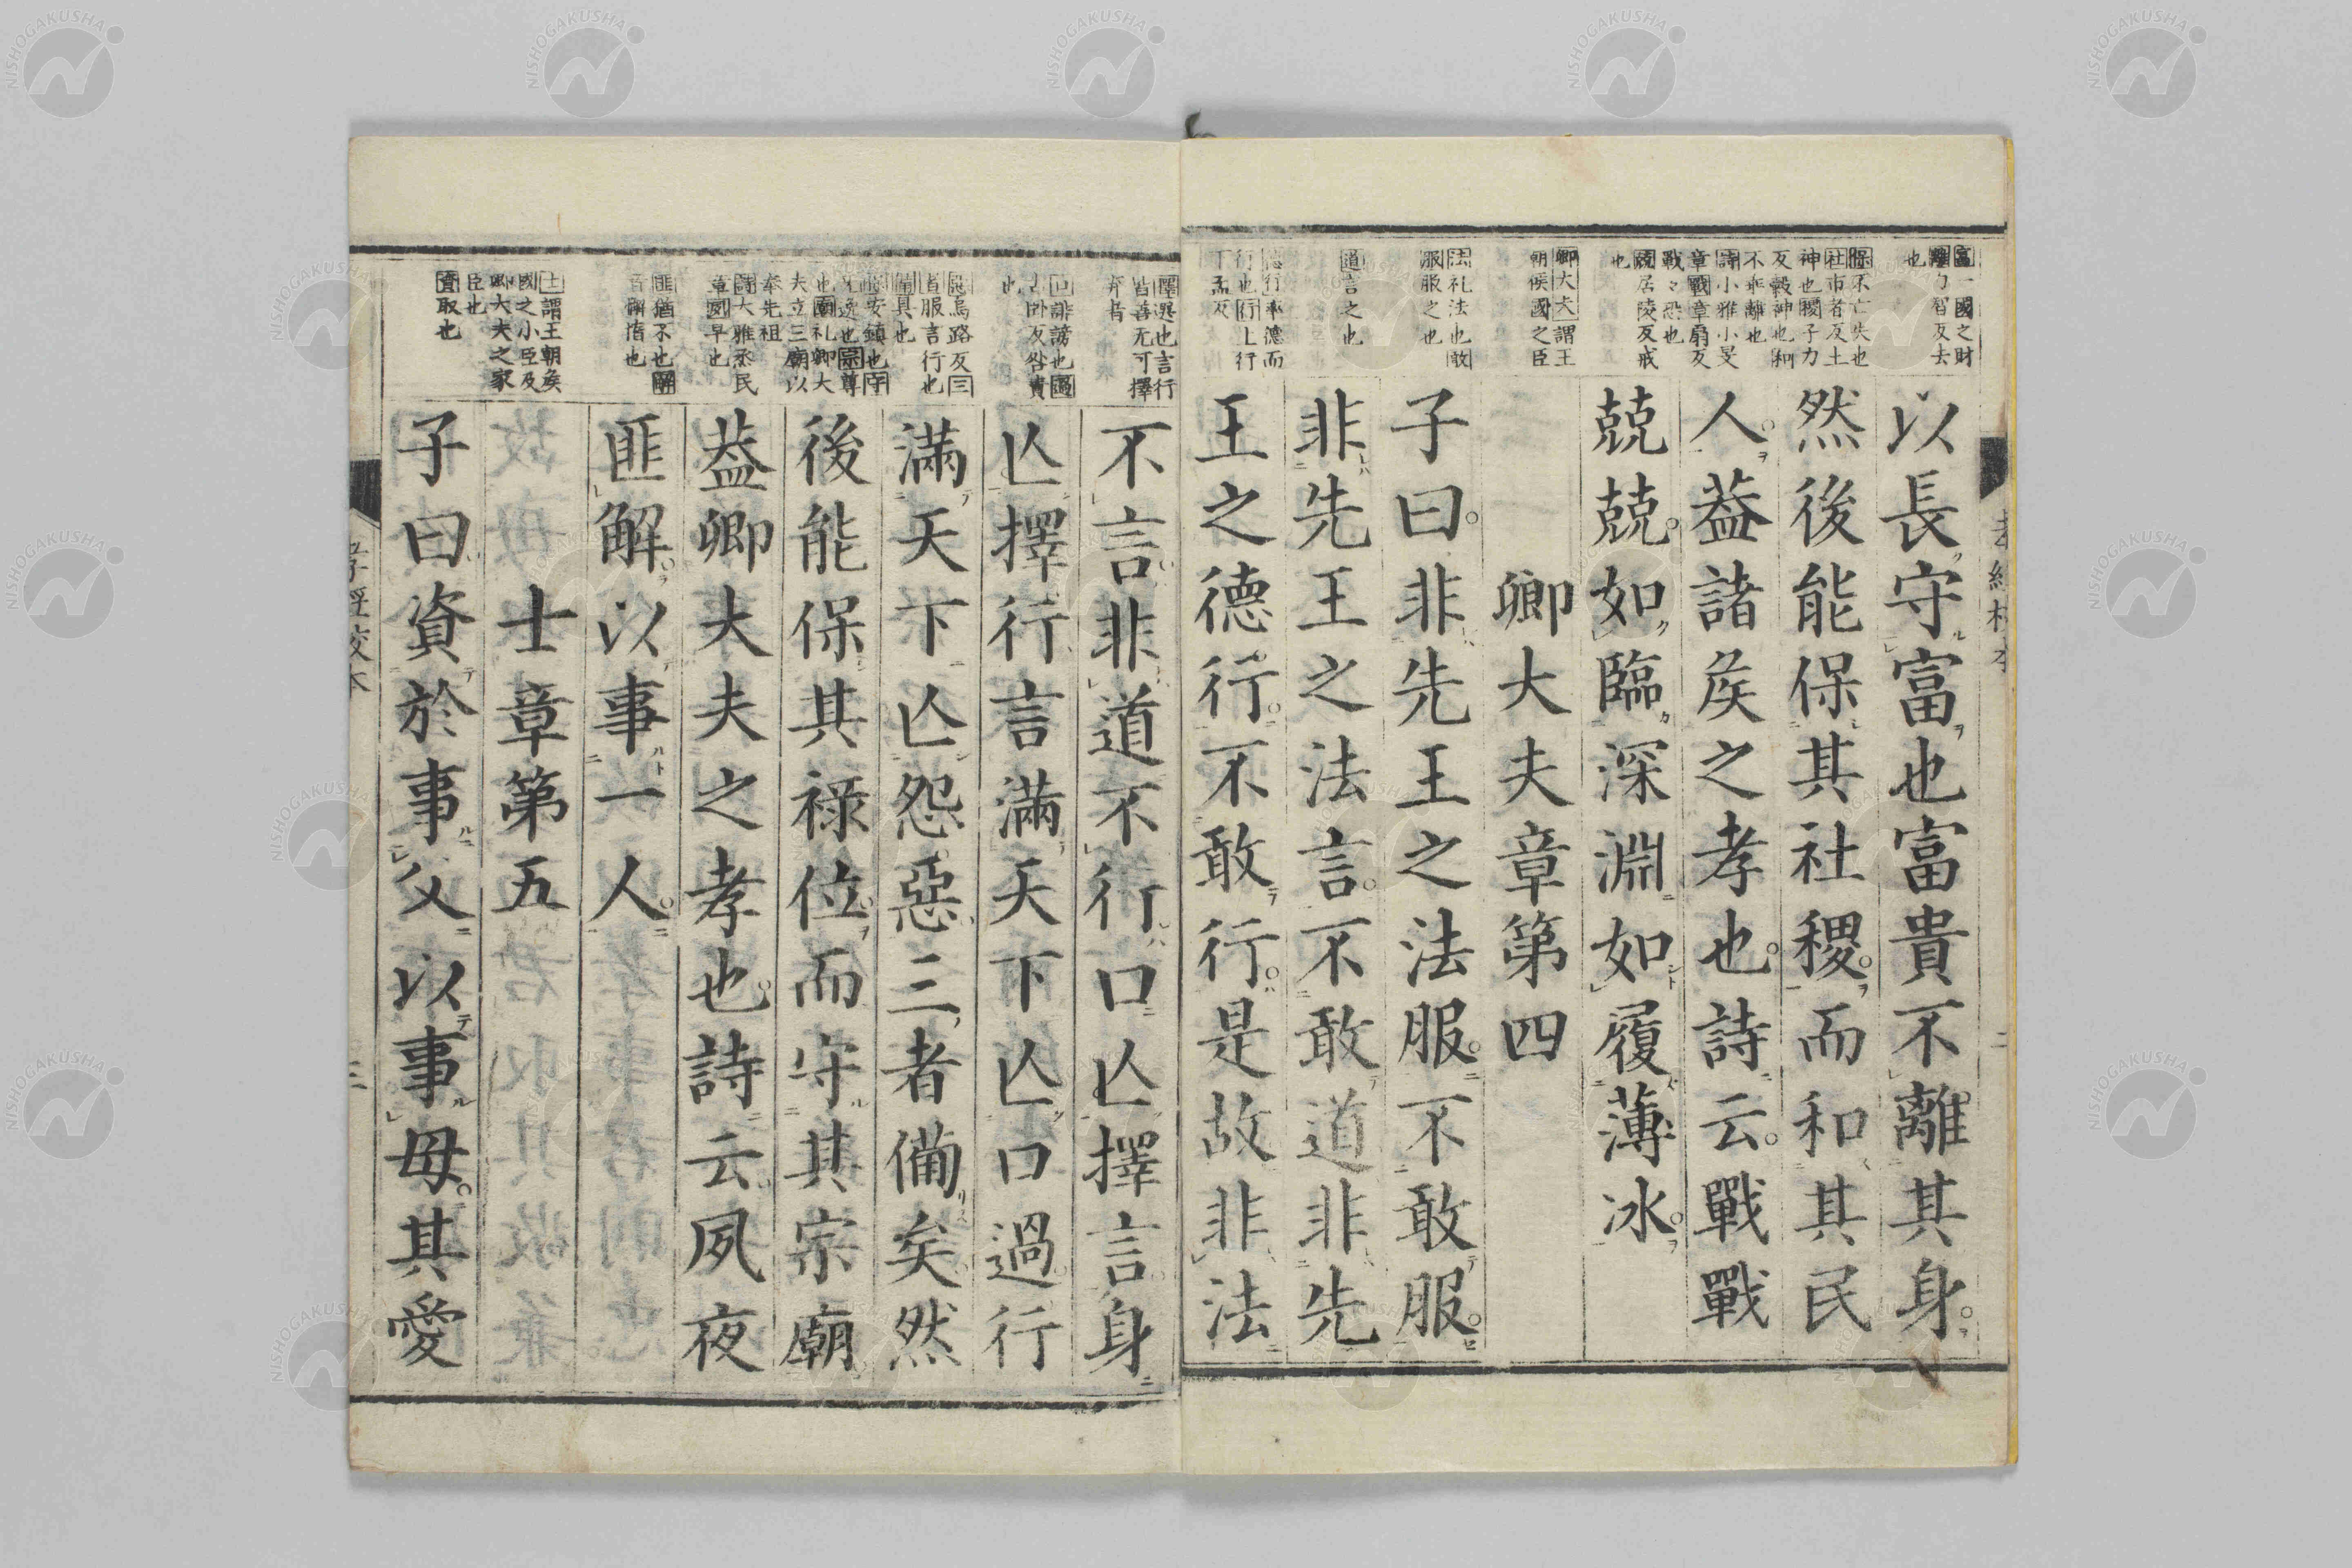 富一國之財
離力智反去
也
保不亡失也
社市者反土
神也稷子力
反穀神也和
不乖離也
詩小雅小旻
章戰章扇反
戰々恐也
兢居陵反戒
也
卿大夫謂王
朝侯國之臣
法礼法也敢
服服之也
道言之也
德行率德而
行也行上行
丁孟反
以長守富也富貴不離其身
然後能保其社稷而和其民
人葢諸矦之孝也詩云戰戰
兢兢如臨深淵如履薄冰
卿大夫章第四
子曰非先王之法服不敢服
非先王之法言不敢道非先
王之德行不敢行是故非法
擇選也言行
皆善无可擇
弃者
口誹謗也過
古卧反咎責
也
惡烏路反三
者服言行也
備具也
保安鎮也守
也宗尊
也廟礼卿大
夫立三廟以
奉先祖
詩大雅烝民
章夙早也
匪猶不也解
音懈惰也
士謂王朝矦
國之小臣及
卿大夫之家
臣也
資取也
不言非道不行口亾擇言身
亾擇行言滿天下亾口過行
滿天下亾怨惡三者備矣然
後能保其禄位而守其宗廟
葢卿大夫之孝也詩云夙夜
匪解以事一人
士章第五
子曰資於事父以事母其愛
孝經校本
三
NISHOGAKUSHA